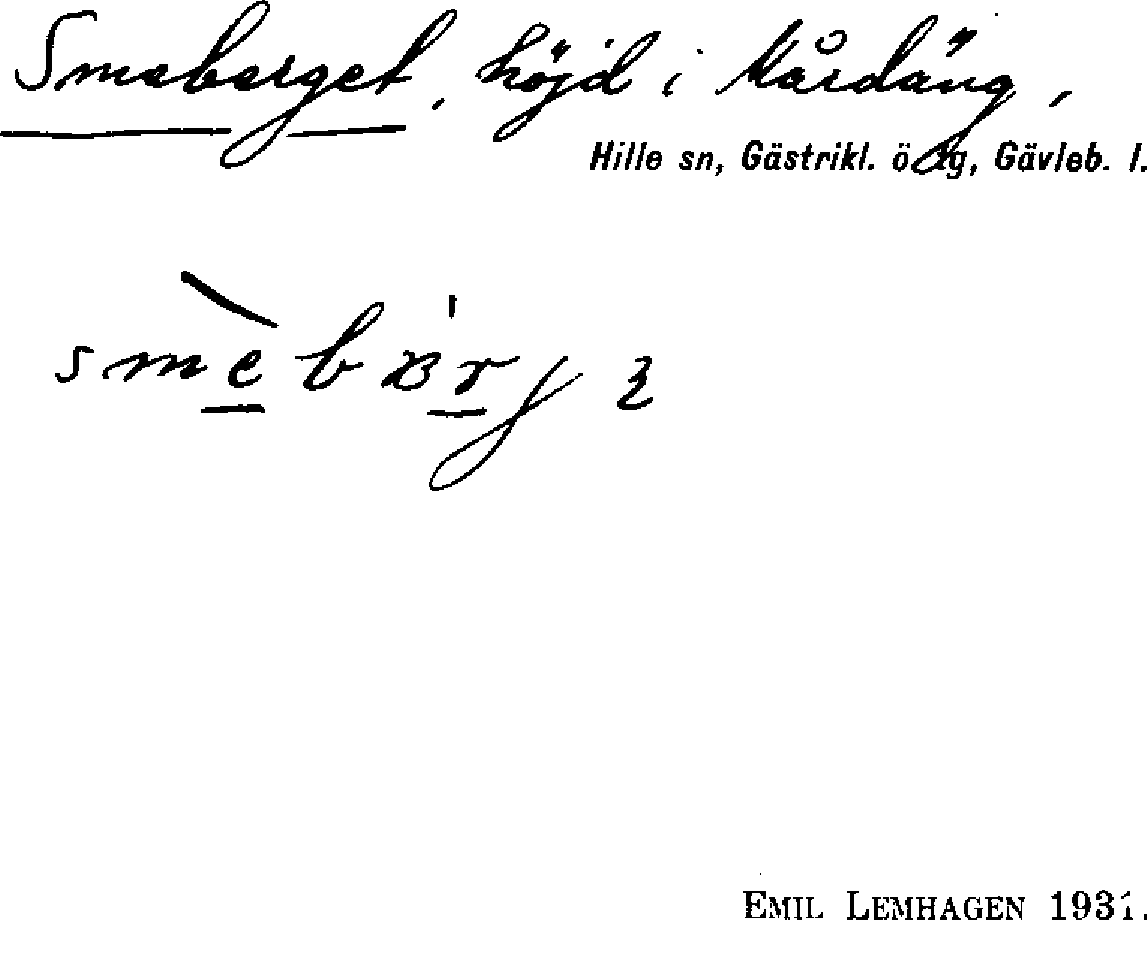 Smeberget, höjd i Mårdäng,
Hille sn, Gästrikl. ö. tg, Gävleb. l.
Emil Lemhagen 1931.